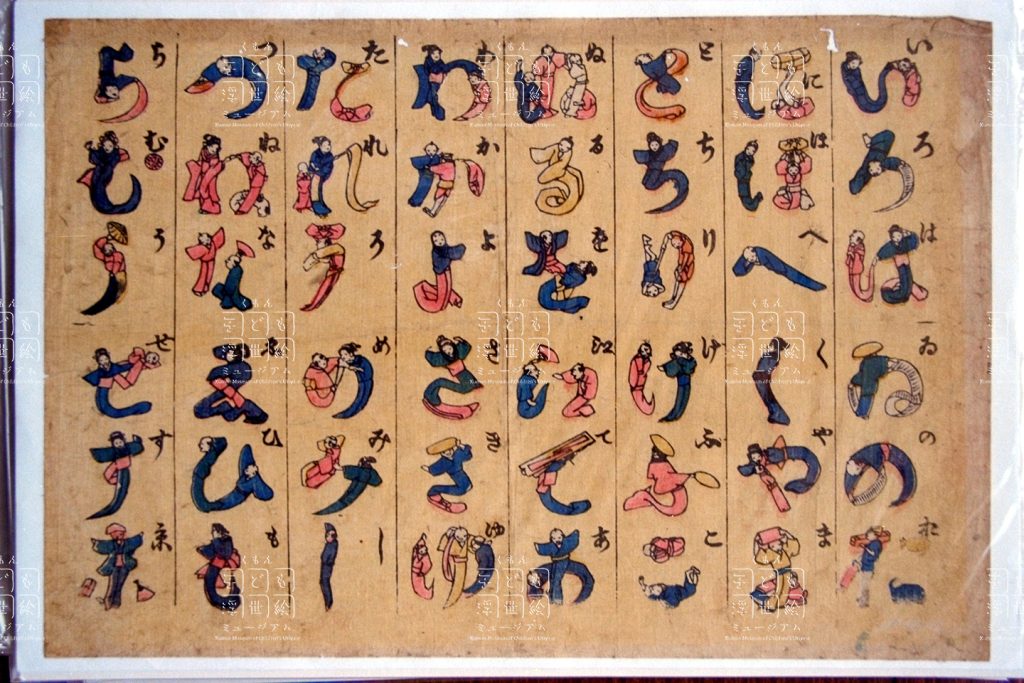 いろは
にほへ
とちり
ぬるを
わかよ
たれそ
つねな
らむう
ゐのお
くやま
けふこ
江てあ
さきゆ
めみし
ゑひも
せす京
くもん
子ども
浮世絵
ミュージアム
Kumon Museum of Children's Ukiyo-e